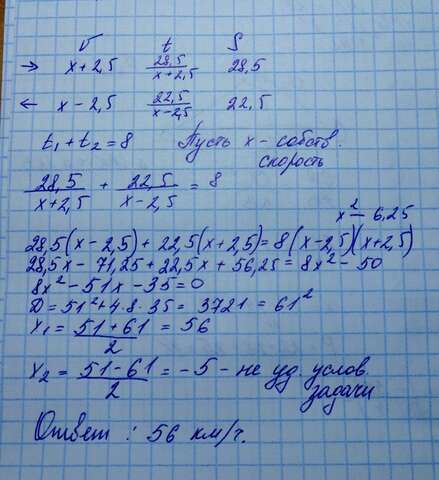 V t S
→ x+2,5 28,5/x+2,5 28,5
← x-2,5 22,5/x-2,5 22,5
t₁+t₂=8 Пусть x - собств.
скорость
28,5/x+2,5 + 22,5/x-2,5 = 8
x² - 6,25
28,5(x-2,5)+22,5(x+2,5)=8(x-2,5)(x+2,5)
28,5x-71,25+22,5x+56,25=8x²-50
8x²-51x-35=0
D=51²+4·8·35=3721=61²
x₁=51+61/2=56
x₂=51-61/2=-5-не уд. услов.
задачи
Ответ: 56 км/г.